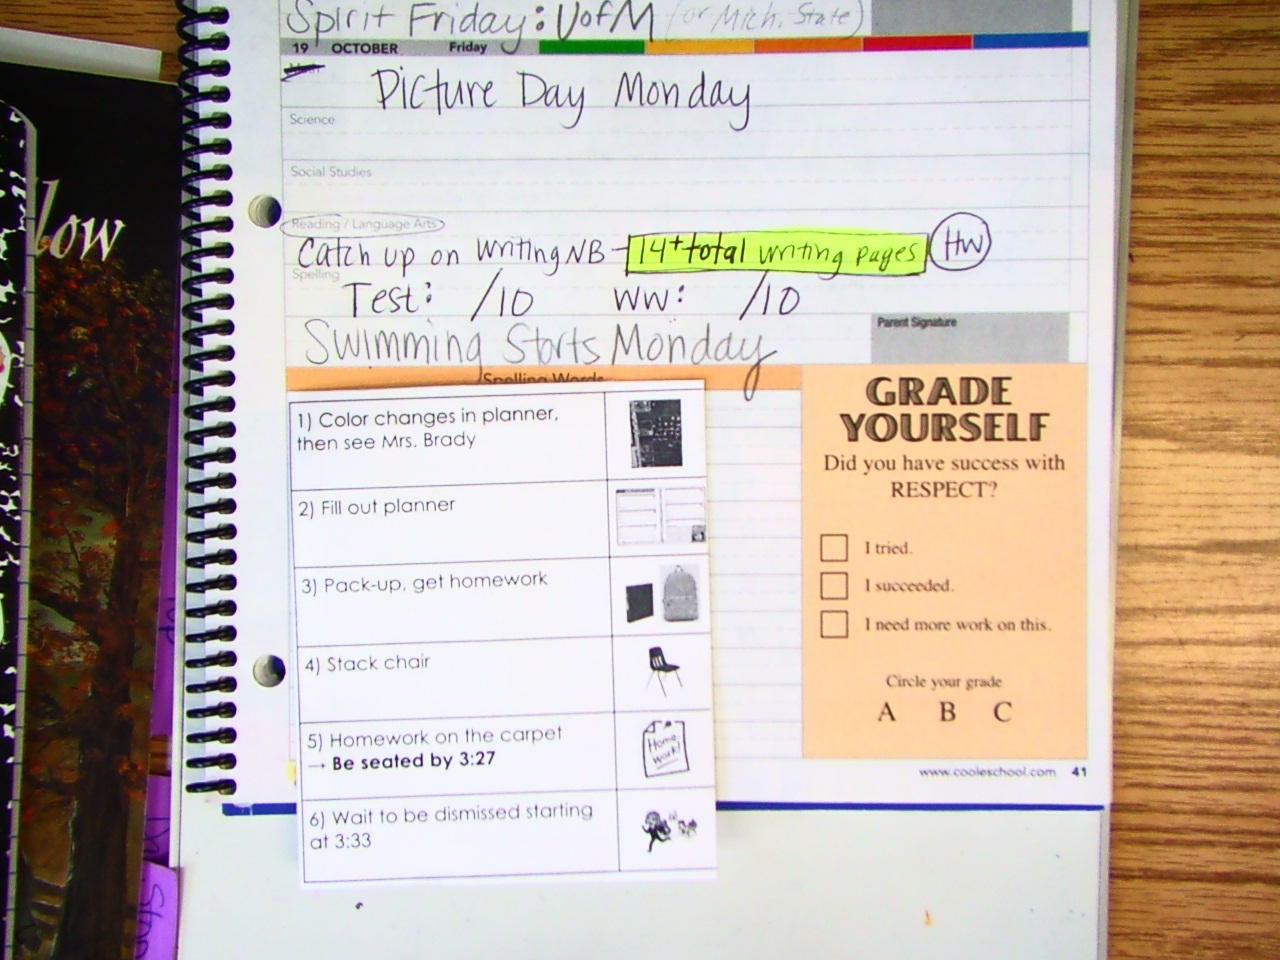 Spirit Friday: UofM (or Mich. State)
19 OCTOBER Friday
Picture Day Monday
Science
Social Studies
Reading / Language Arts
Catch up on Writing NB - 14+ total writing pages HW
Spelling
Test: /10 WW: /10
Swimming Starts Monday
Parent Signature
Spelling Words
1) Color changes in planner,
then see Mrs. Brady
2) Fill out planner
3) Pack-up, get homework
4) Stack chair
5) Homework on the carpet
→ Be seated by 3:27
Home
work!
6) Wait to be dismissed starting
at 3:33
GRADE
YOURSELF
Did you have success with
RESPECT?
I tried.
I succeeded.
I need more work on this.
Circle your grade
A B C
www.cooleschool.com 41
low